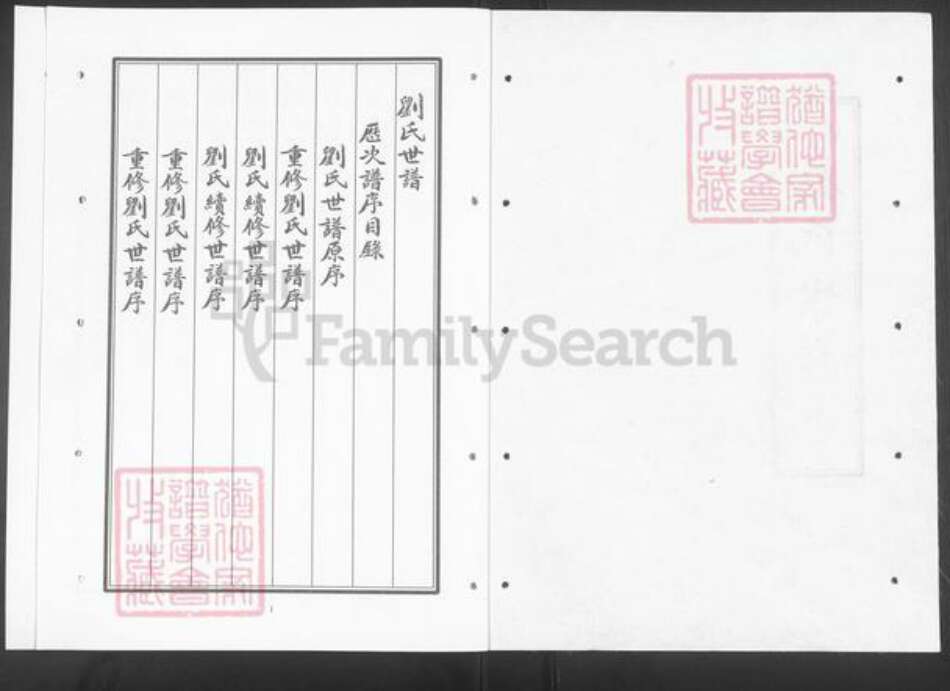 劉氏世譜
歷次譜序目錄
劉氏世譜原序
重修劉氏世譜序
劉氏續修世譜序
劉氏續修世譜序
重修劉氏世譜序
重修劉氏世譜序
猶他家
譜學會
收藏
猶他家
譜學會
收藏
FamilySearch